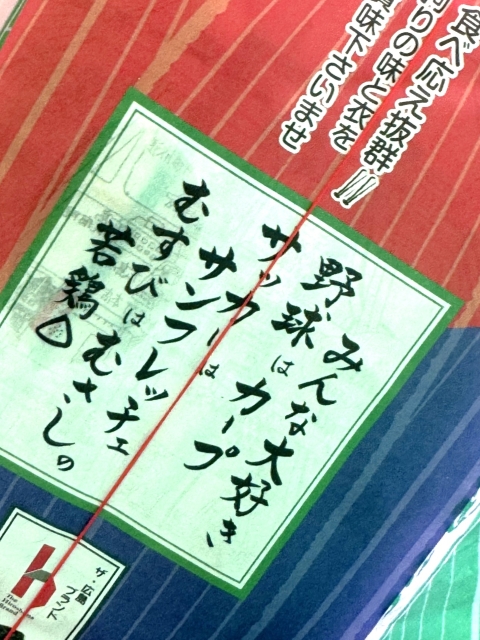 食べ応え抜群!!
りの味と衣を
味下さいませ
みんな大好き
野球はカープ
サッカーは
サンフレッチェ
むすびはむさしの
若鶏△
ザ・広島
ブランド
The
Hiroshima
Brand